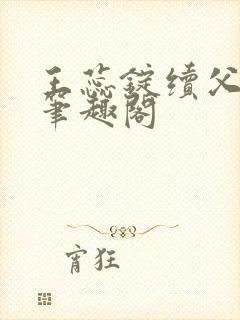 玉蕊錠續父
筆趣閣
宵狂